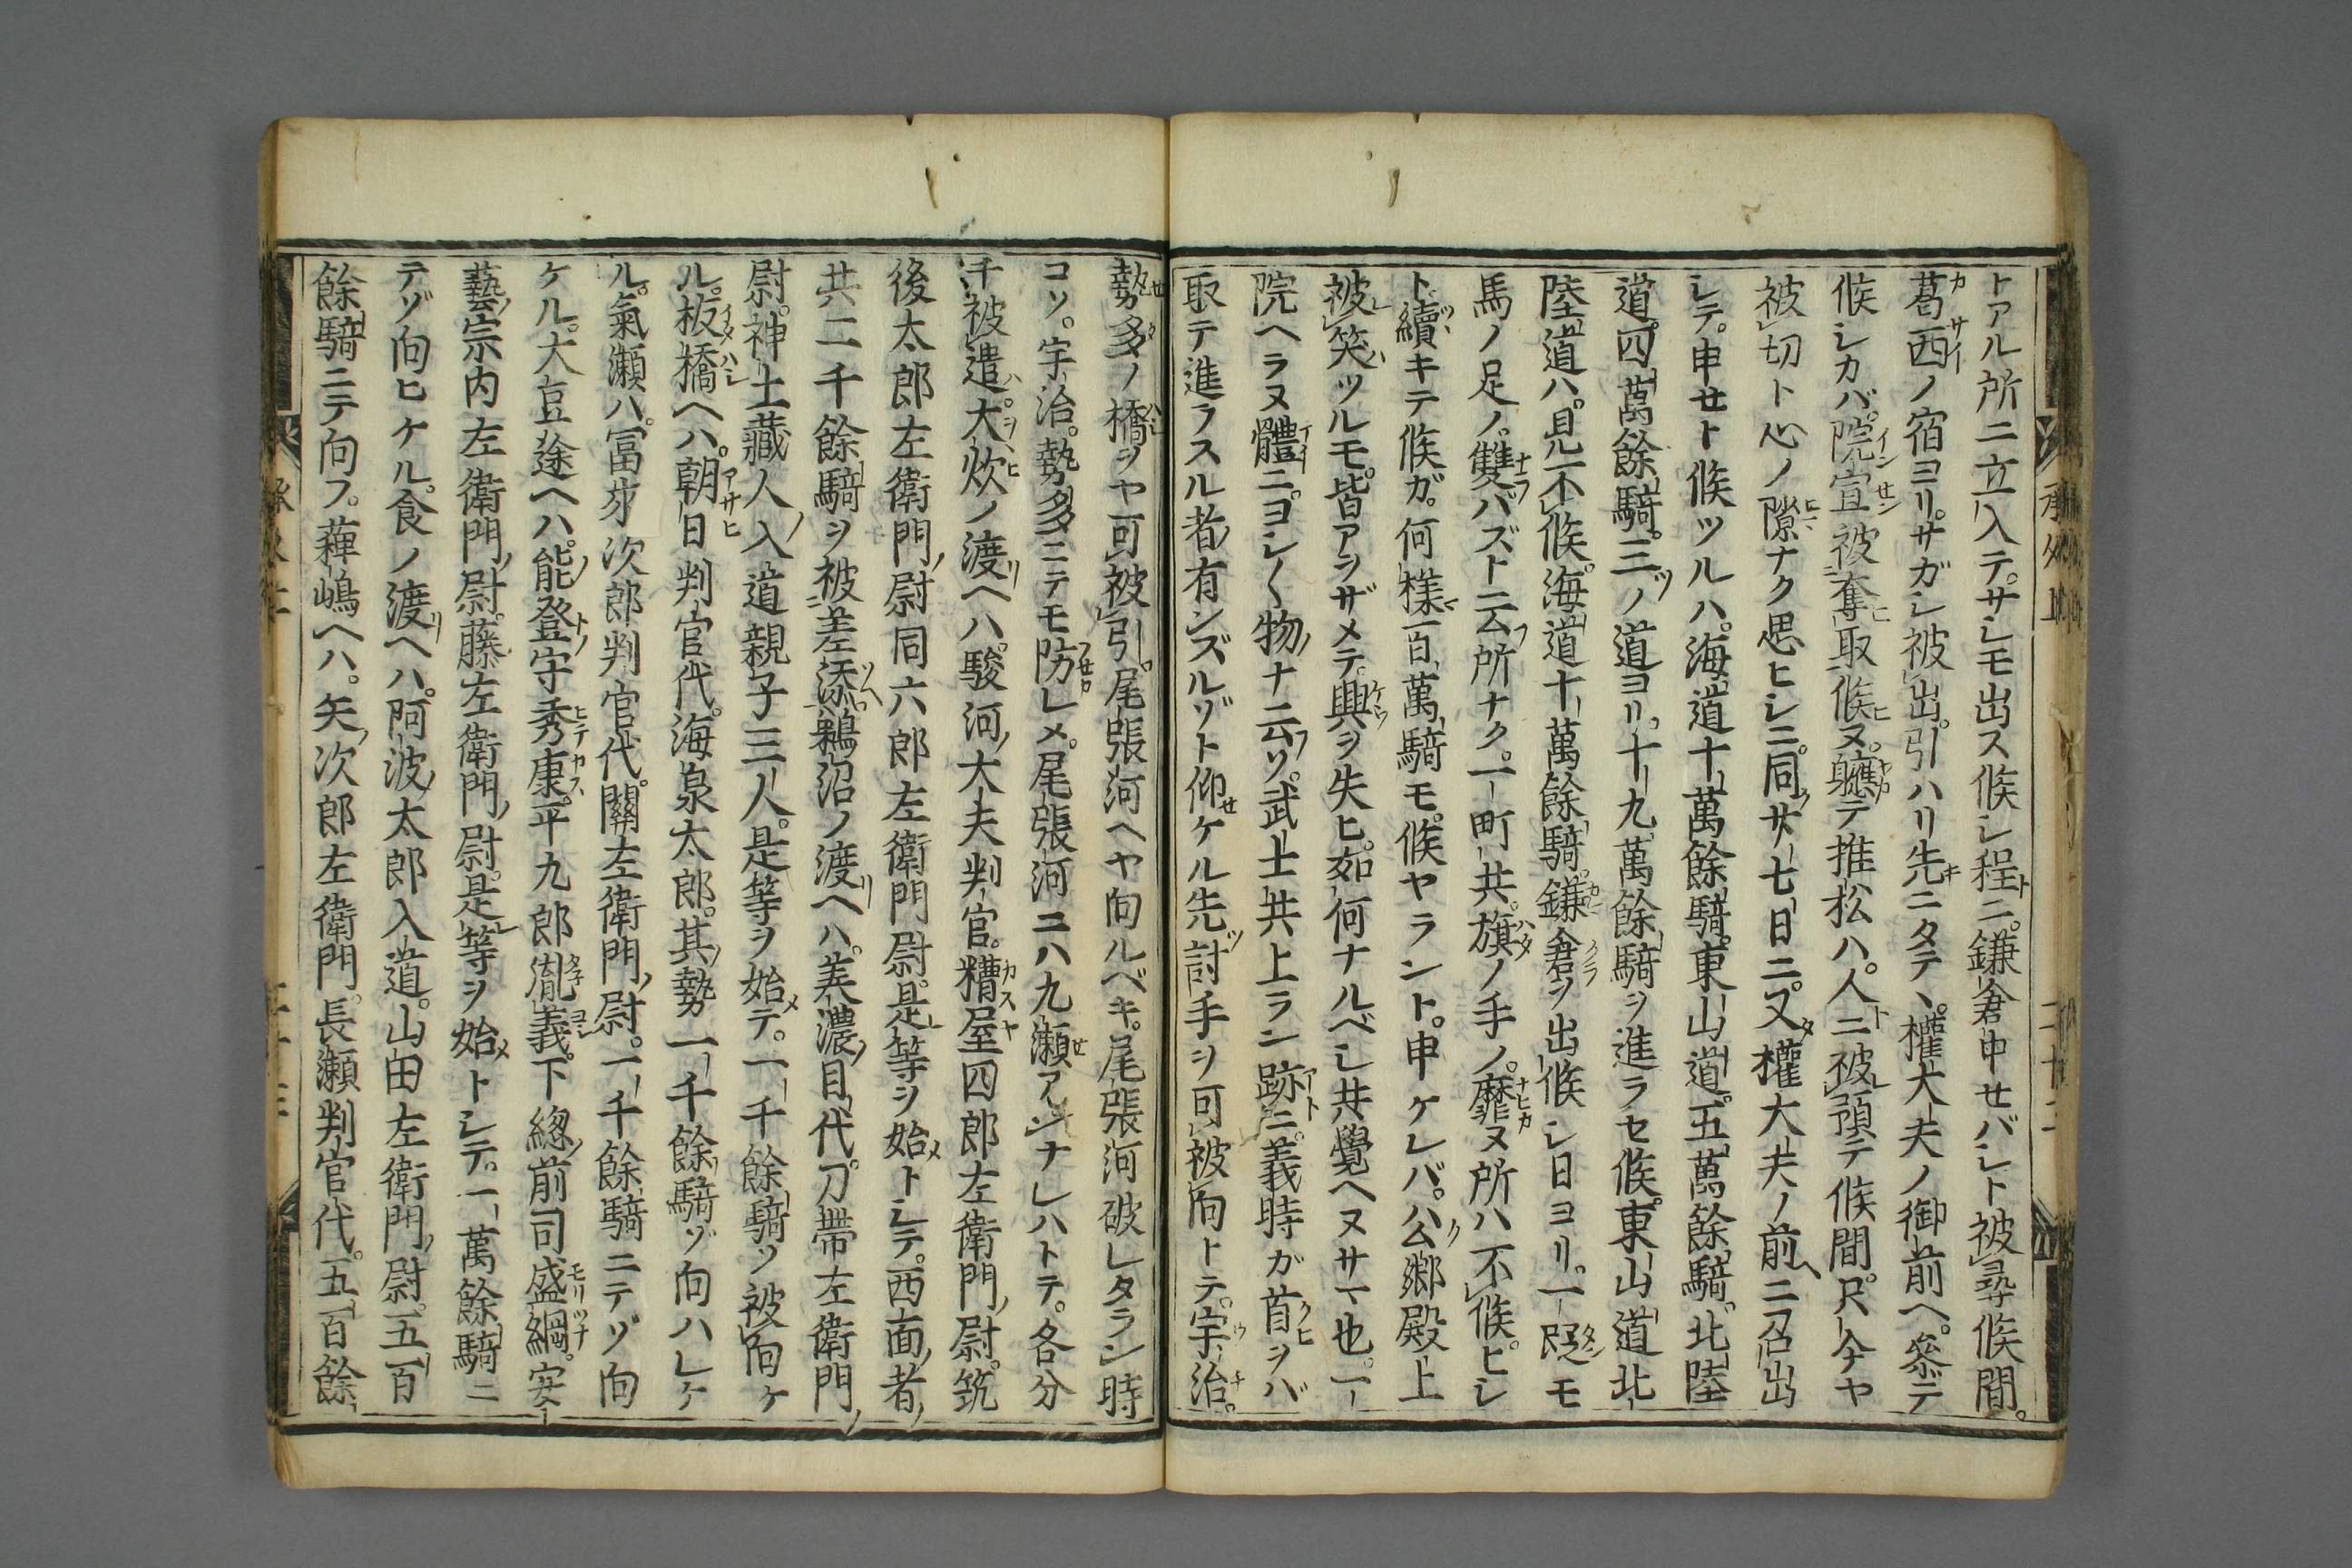 トアル所ニ立入テ。サシモ出ス候シ程ニ。鎌倉中セバシト被尋候間。
葛西ノ宿ヨリ。サガシ被出。引ハリ先ニタテヽ。權大夫ノ御前ヘ。參テ
候シカバ。院宣被奪取候ヌ。軈テ推松ハ。人ニ被預テ候間。只今ヤ
被切ト心ノ隙ナク思ヒシニ。同廿七日ニ。又權大夫ノ前ニ召出
シテ。申セト候ツルハ。海道十萬餘騎。東山道。五萬餘騎。北陸
道。四萬餘騎。三ノ道ヨリ。十九萬餘騎ヲ進ラセ候。東山道北
陸道ハ。見不候。海道十萬餘騎。鎌倉ヲ出候シ日ヨリ。一段モ
馬ノ足ノ。雙バズト云所ナク。一町共。旗ノ手ノ。靡ヌ所ハ不候。ヒシ
ト續キテ候ガ。何樣百萬騎モ。候ヤラント。申ケレバ。公卿殿上
被笑ツルモ。皆アヲザメテ。興ヲ失ヒ。如何ナルベシ共覺ヘヌサマ也。一
院ヘラヌ體ニ。ヨシ〱物ナ云ソ。武士共上ラン跡ニ。義時ガ首ヲバ
取テ進ラスル者有ンズルゾト仰ケル先討手ヲ可被向トテ。宇治。
勢多ノ橋ヲヤ可被引。尾張河ヘヤ向ルベキ。尾張河破レタラン時
コソ。宇治。勢多ニテモ防レメ。尾張河ニハ九瀬アンナレハトテ。各分
チ被遣。大炊ノ渡ヘハ。駿河大夫判官。糟屋四郎左衛門尉。筑
後太郎左衛門尉同六郎左衛門尉。是等ヲ始トシテ。西面者
共二千餘騎ヲ被差添。鵜沼ノ渡ヘハ。美濃目代。刀帶左衛門
尉。神土藏人入道親子三人。是等ヲ始テ。一千餘騎ソ被向ケ
ル。板橋ヘハ。朝日判官代。海泉太郎。其勢一千餘騎ゾ向ハレケ
ル。氣瀬ハ。冨才次郎判官代。關左衛門尉。一千餘騎ニテゾ向
ケル。大豆途ヘハ。能登守秀康。平九郎胤義。下總前司盛綱。安
藝宗内左衛門尉。藤左衛門尉。是等ヲ始トシテ。一萬餘騎ニ
テゾ向ヒケル。食ノ渡ヘハ。阿波太郎入道。山田左衛門尉。五百
餘騎ニテ向フ。薭嶋ヘハ。矢次郎左衛門。長瀬判官代。五百餘